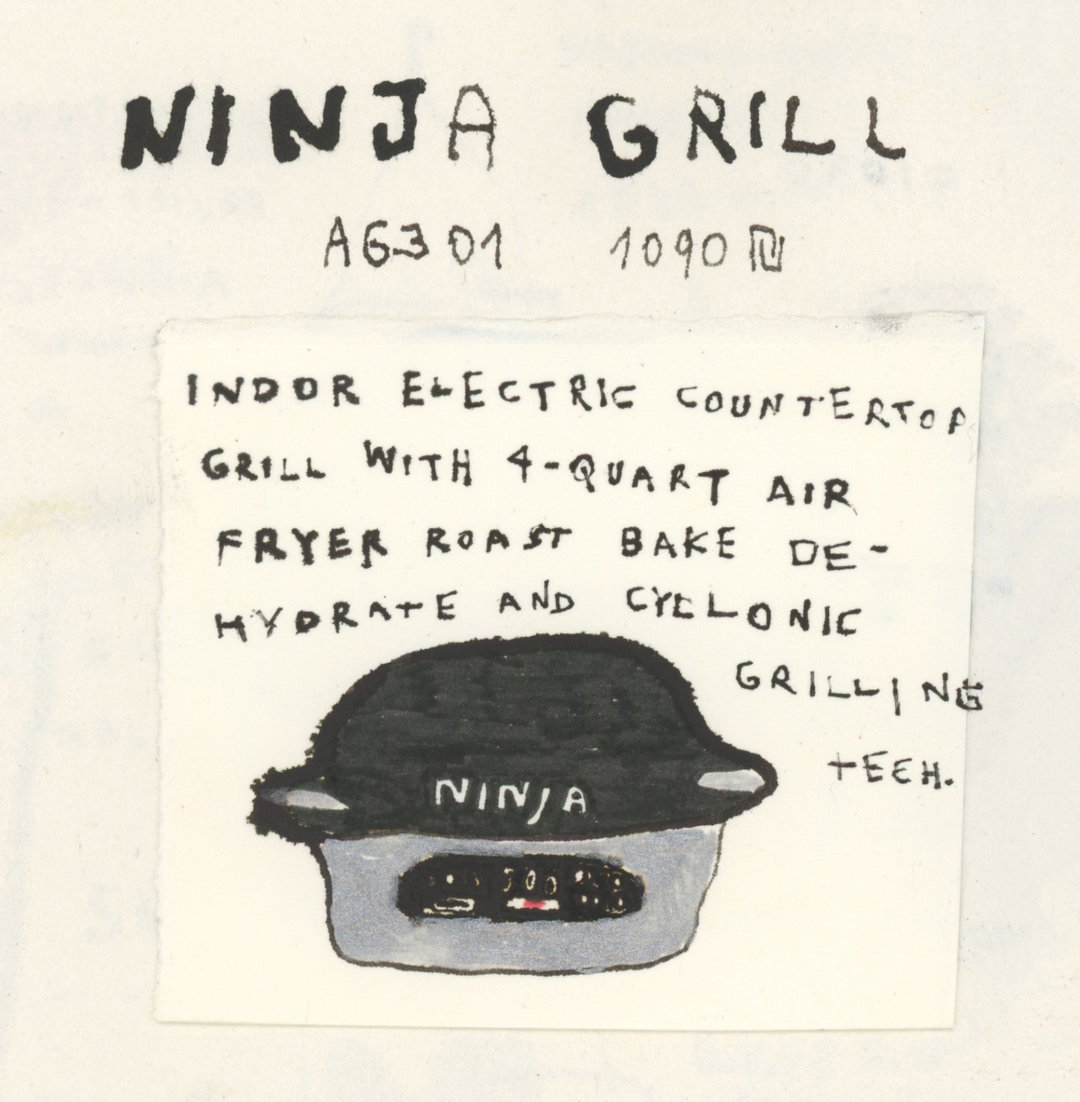 NINJA GRILL
AG301 1090₪
INDOR ELECTRIC COUNTERTOP
GRILL WITH 4-QUART AIR
FRYER ROAST BAKE DE-
HYDRATE AND CYCLONIC
GRILLING
TECH.
NINJA
300